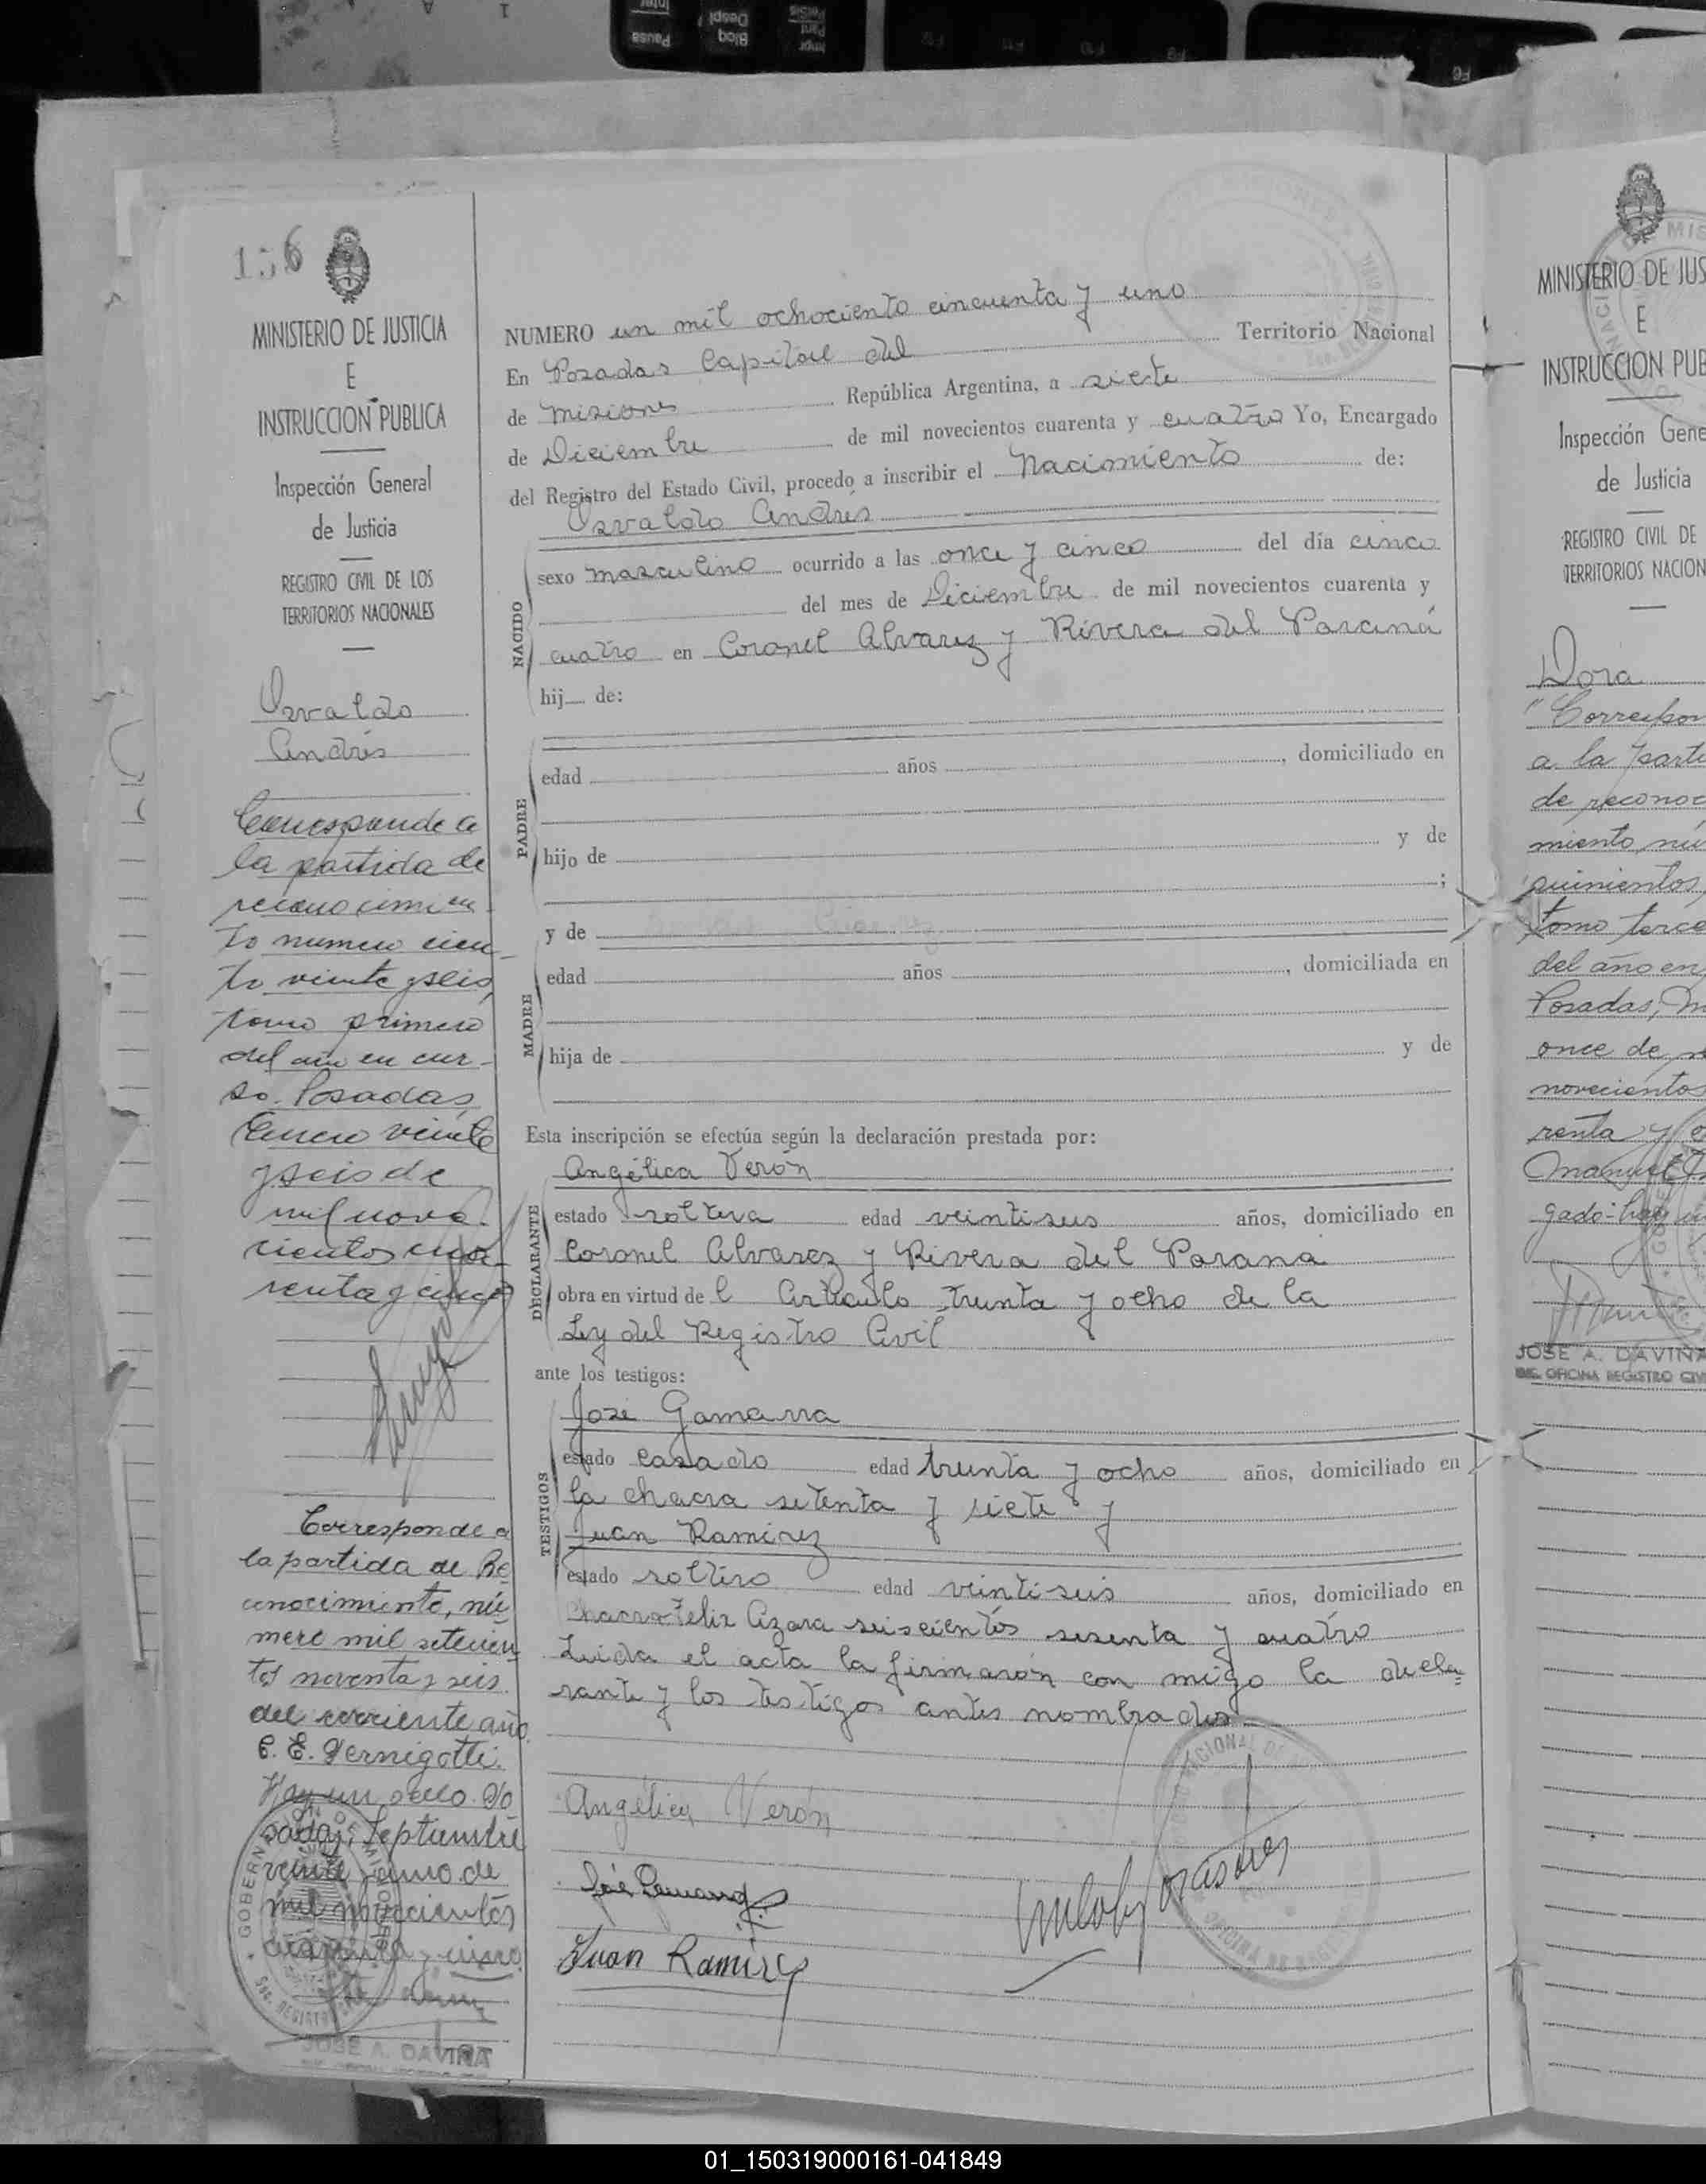 156
MINISTERIO DE JUSTICIA
E
INSTRUCCION PUBLICA
Inspección General
de Justicia
REGISTRO CIVIL DE LOS
TERRITORIOS NACIONALES
Osvaldo
Andrés
Corresponde a
la partida de
reconocimien
to numero cien
to veinte y seis,
tomo primero
del año en cur-
so. Posadas,
Enero veinte
y seis de
mil nove-
cientos cua-
renta y cinco
Corresponde a
la partida de Re
conocimiento, nú
mero mil setecien
tos noventa y seis
del corriente año.
C. E. Vernigotti.
Hay un sello. Po
sadas, Septiembre
veinte y uno de
mil novecientos
cuarenta y cinco.
JOSE A. DAVIÑA
NUMERO un mil ochociento cincuenta y uno
En Posadas Capital del Territorio Nacional
de Misiones República Argentina, a siete
de Diciembre de mil novecientos cuarenta y cuatro Yo, Encargado
del Registro del Estado Civil, procedo a inscribir el Nacimiento de:
Osvaldo Andrés
NACIDO
sexo masculino ocurrido a las once y cinco del día cinco
del mes de Diciembre de mil novecientos cuarenta y
cuatro en Coronel Alvarez y Rivera del Paraná
hij de:
PADRE
edad años , domiciliado en
hijo de y de
;
y de
MADRE
edad años , domiciliada en
hija de y de
Esta inscripción se efectúa según la declaración prestada por:
Angélica Verón
DECLARANTE
estado soltera edad veintiseis años, domiciliado en
Coronel Alvarez y Rivera del Parana
obra en virtud de l Articulo treinta y ocho de la
Ley del Registro Civil
ante los testigos:
José Gamarra
TESTIGOS
estado casado edad treinta y ocho años, domiciliado en
la chacra setenta y siete y
Juan Ramirez
estado soltero edad veinti-seis años, domiciliado en
Felix Azara seiscientos sesenta y cuatro
Leida el acta la firmarón con migo la decla
rante y los testigos antes nombrados
Angélica Verón
Juan Ramirez
MINISTERIO DE JUS
E
INSTRUCCION PUB
Inspección Gene
de Justicia
REGISTRO CIVIL DE
TERRITORIOS NACION
Dora
"Correspon
a la parti
de reconoc
miento nú
quinientos,
tomo terce
del año en
Posadas, M
once de
novecientos
renta y
Manuel
gado: hay
JOSE A. DAVIÑA
ENC. OFICINA REGISTRO CIV
01_150319000161-041849